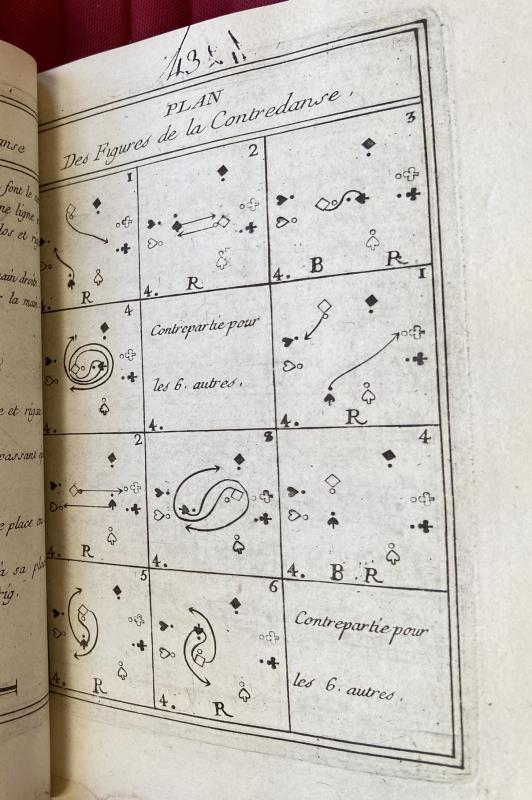 PLAN
Des Figures de la Contredanse.
1
R
2
4. R
3
4. B R
4
4.
Contrepartie pour
les 6. autres.
4.
1
4. R
2
4. R
8
4.
4
4. B R
5
4. R
6
4. R
Contrepartie pour
les 6. autres.
anse
font le
ne ligne
dos et
ain droite
la main.
e et
passant
e place ou
à sa
rig.